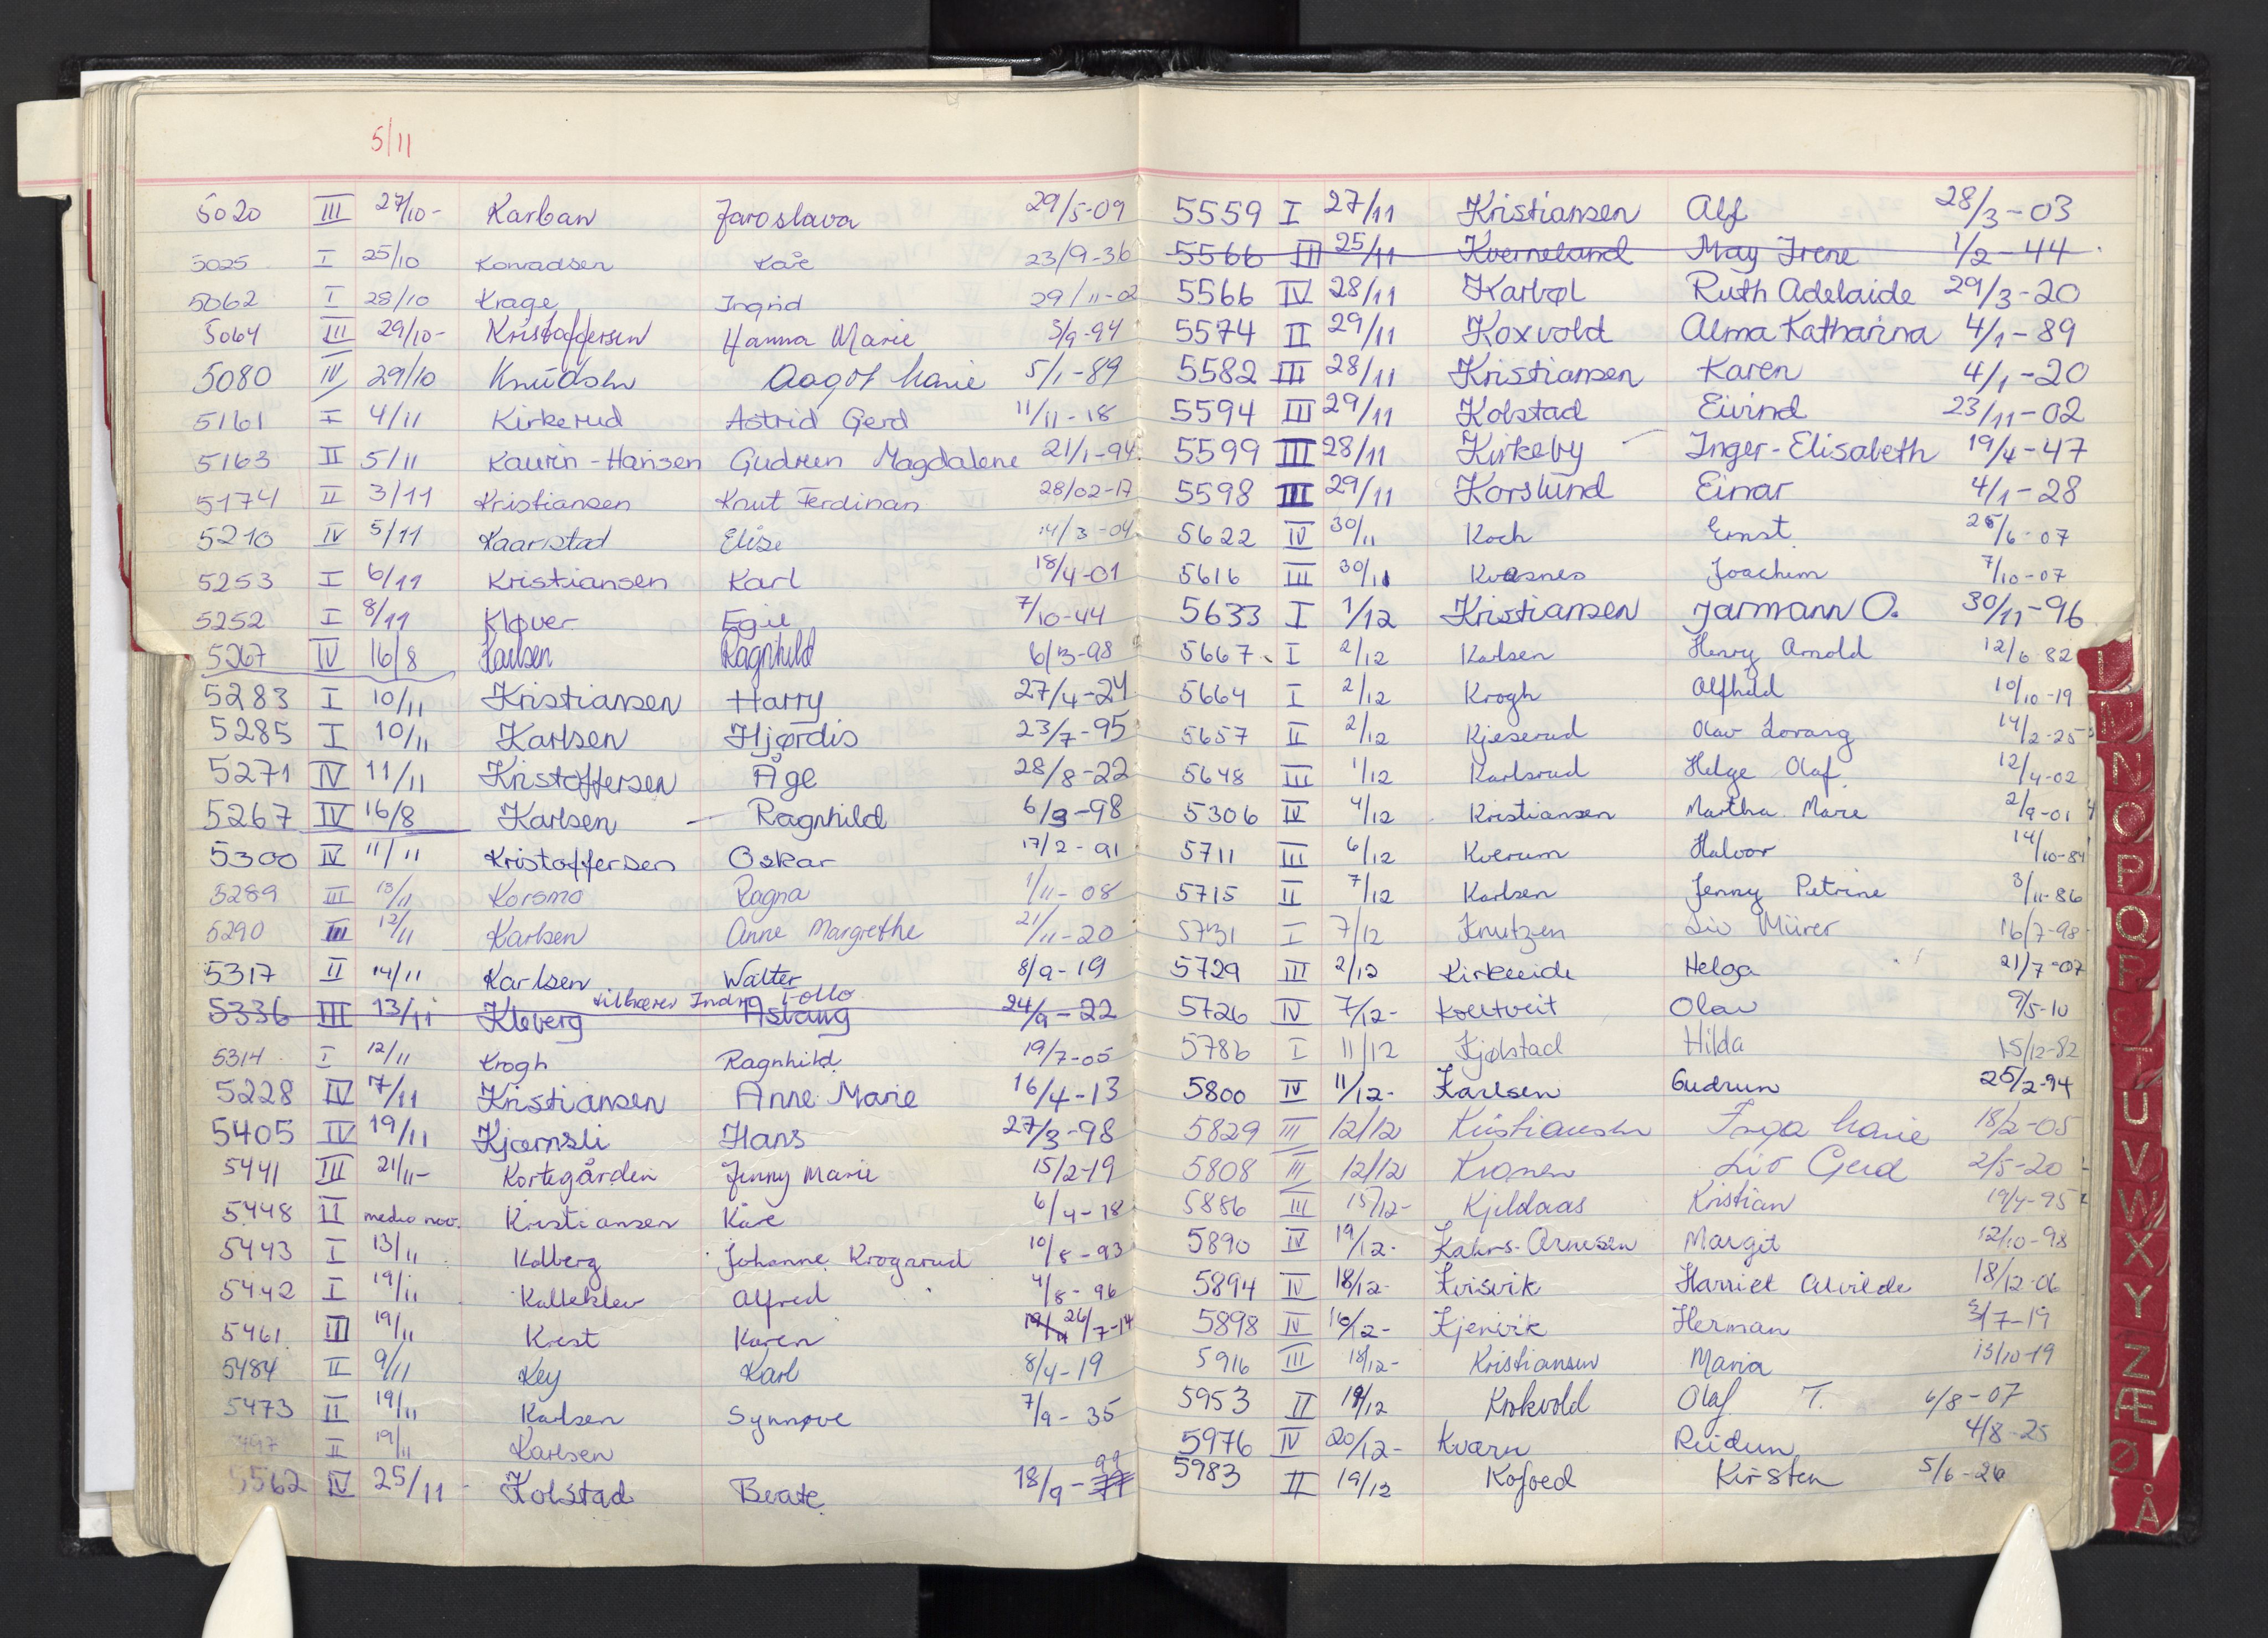 5/11
5020 III 27/10- Karban Jaroslava 29/5-09
5025 I 25/10 Konradsen Kåre 23/9-36
5062 I 28/10 Krage Ingrid 29/11-02
5064 III 29/10- Kristoffersen Hanna Marie 3/9-94
5080 IV 29/10 Knudsen Aagot Marie 5/1-89
5161 I 4/11 Kirkerud Astrid Gerd 11/11-18
5163 II 5/11 Kaurin-Hansen Gudrun Magdalene 21/1-94
5174 II 3/11 Kristiansen Knut Ferdinan 28/02-17
5210 IV 5/11 Kaarstad Elise 14/3-04
5253 I 6/11 Kristiansen Karl 18/4-01
5252 I 8/11 Kløver Egil 7/10-44
5267 IV 16/8 Karlsen Ragnhild 6/3-98
5283 I 10/11 Kristiansen Harry 27/4-24
5285 I 10/11 Karlsen Hjørdis 23/7-95
5271 IV 11/11 Kristoffersen Åge 28/8-22
5267 IV 16/8 Karlsen Ragnhild 6/3-98
5300 IV 11/11 Kristoffersen Oskar 17/2-91
5289 III 13/11 Korsmo Ragna 1/11-08
5290 III 12/11 Karlsen Anne Margrethe 21/11-20
5317 II 14/11 Karlsen Walter 8/9-19
tilhører Indre Follo
5336 III 13/11 Kleberg Åslaug 24/9-22
5314 I 12/11 Krogh Ragnhild 19/7-05
5228 IV 7/11 Kristiansen Anne Marie 16/4-13
5405 IV 19/11 Kjærnsli Hans 27/3-98
5441 III 21/11- Kortegården Jenny Marie 15/2-19
5448 II medio nov. Kristiansen Kåre 6/4-18
5443 I 13/11 Kolberg Johanne Krogsrud 10/8-93
5442 I 19/11 Kalleklev Alfred 4/8-96
5461 III 19/11 Krest Karen 26/7-14
5484 II 9/11 Key Karl 8/4-19
5473 II 19/11 Karlsen Synnøve 7/9-35
II 19/11 Karlsen
5562 IV 25/11 Kolstad Beate 18/9-99
5559 I 27/11 Kristiansen Alf 28/3-03
5566 III 25/11 Kverneland May Irene 1/2-44
5566 IV 28/11 Karbøl Ruth Adelaide 29/3-20
5574 II 29/11 Koxvold Alma Katharina 4/1-89
5582 III 28/11 Kristiansen Karen 4/1-20
5594 III 29/11 Kolstad Eivind 23/11-02
5599 III 28/11 Kirkeby Inger-Elisabeth 19/4-47
5598 III 29/11 Korslund Einar 4/1-28
5622 IV 30/11 Koch Ernst /6-07
5616 III 30/11 Kvasnes Joachim 7/10-07
5633 I 1/12 Kristiansen Jarmann O. 30/11-96
5667 I 2/12 Karlsen Henry Arnold 12/6 82
5664 I 2/12 Krogh Alfhild 10/10-19
5657 II 2/12 Kjeserud Olav Lorang 14/2-25
5648 III 1/12 Karlsrud Helge Olaf 12/4-02
5306 IV 4/12 Kristiansen Martha Marie 2/9-01
5711 III 6/12 Kverum Halvor 14/10-84
5715 II 7/12 Karlsen Jenny Petrine 3/11-86
5731 I 7/12 Knutzen Liv Mürer 16/7-98
5729 III 2/12 Kirkeeide Helga 21/7-07
5726 IV 7/12- Koltveit Olav 9/5-10
5786 I 11/12 Kjølstad Hilda 15/12-82
5800 IV 11/12- Karlsen Gudrun 25/2-94
5829 III 12/12 Kristiansen Inga Marie 18/2-05
5808 III 12/12 Kronen Liv Gerd 2/5-20
5886 III 15/12- Kjeldaas Kristian 19/4-95
5890 IV 19/12- Kahrs-Arnesen Margit 12/10-98
5894 IV 18/12- Kvisvik Harriet Alvilde 18/12-06
5898 IV 16/12- Kjenvik Herman /7-19
5916 III 18/12- Kristiansen Maria 13/10-19
5953 II 19/12 Krokvold Olaf T. 6/8-07
5976 IV 20/12- Kværn Reidun 4/8-25
5983 II 19/12 Kofoed Kirsten 5/6-26
L
M
N
O
P
Q
R
T
U
V
W
X
Y
Z
Æ
Ø
Å